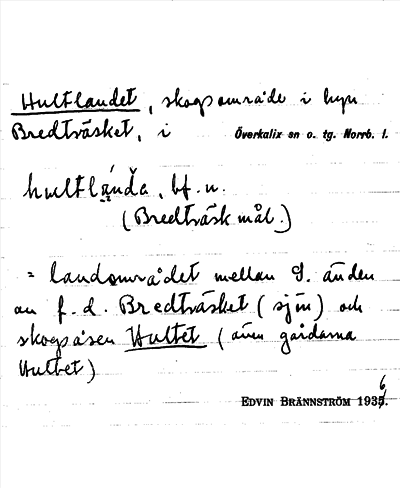 Hultlandet, skogsområde i byn
Bredträsket, i Överkalix sn o. tg. Norrb. l.
hultlạ̈nda, bf. n.
(Bredträsk mål.)
= landområdet mellan S. änden
av f. d. Bredträsket (sjön) och
skogsåsen Hultet (även gårdarna
Hultet)
EDVIN BRÄNNSTRÖM 1936.